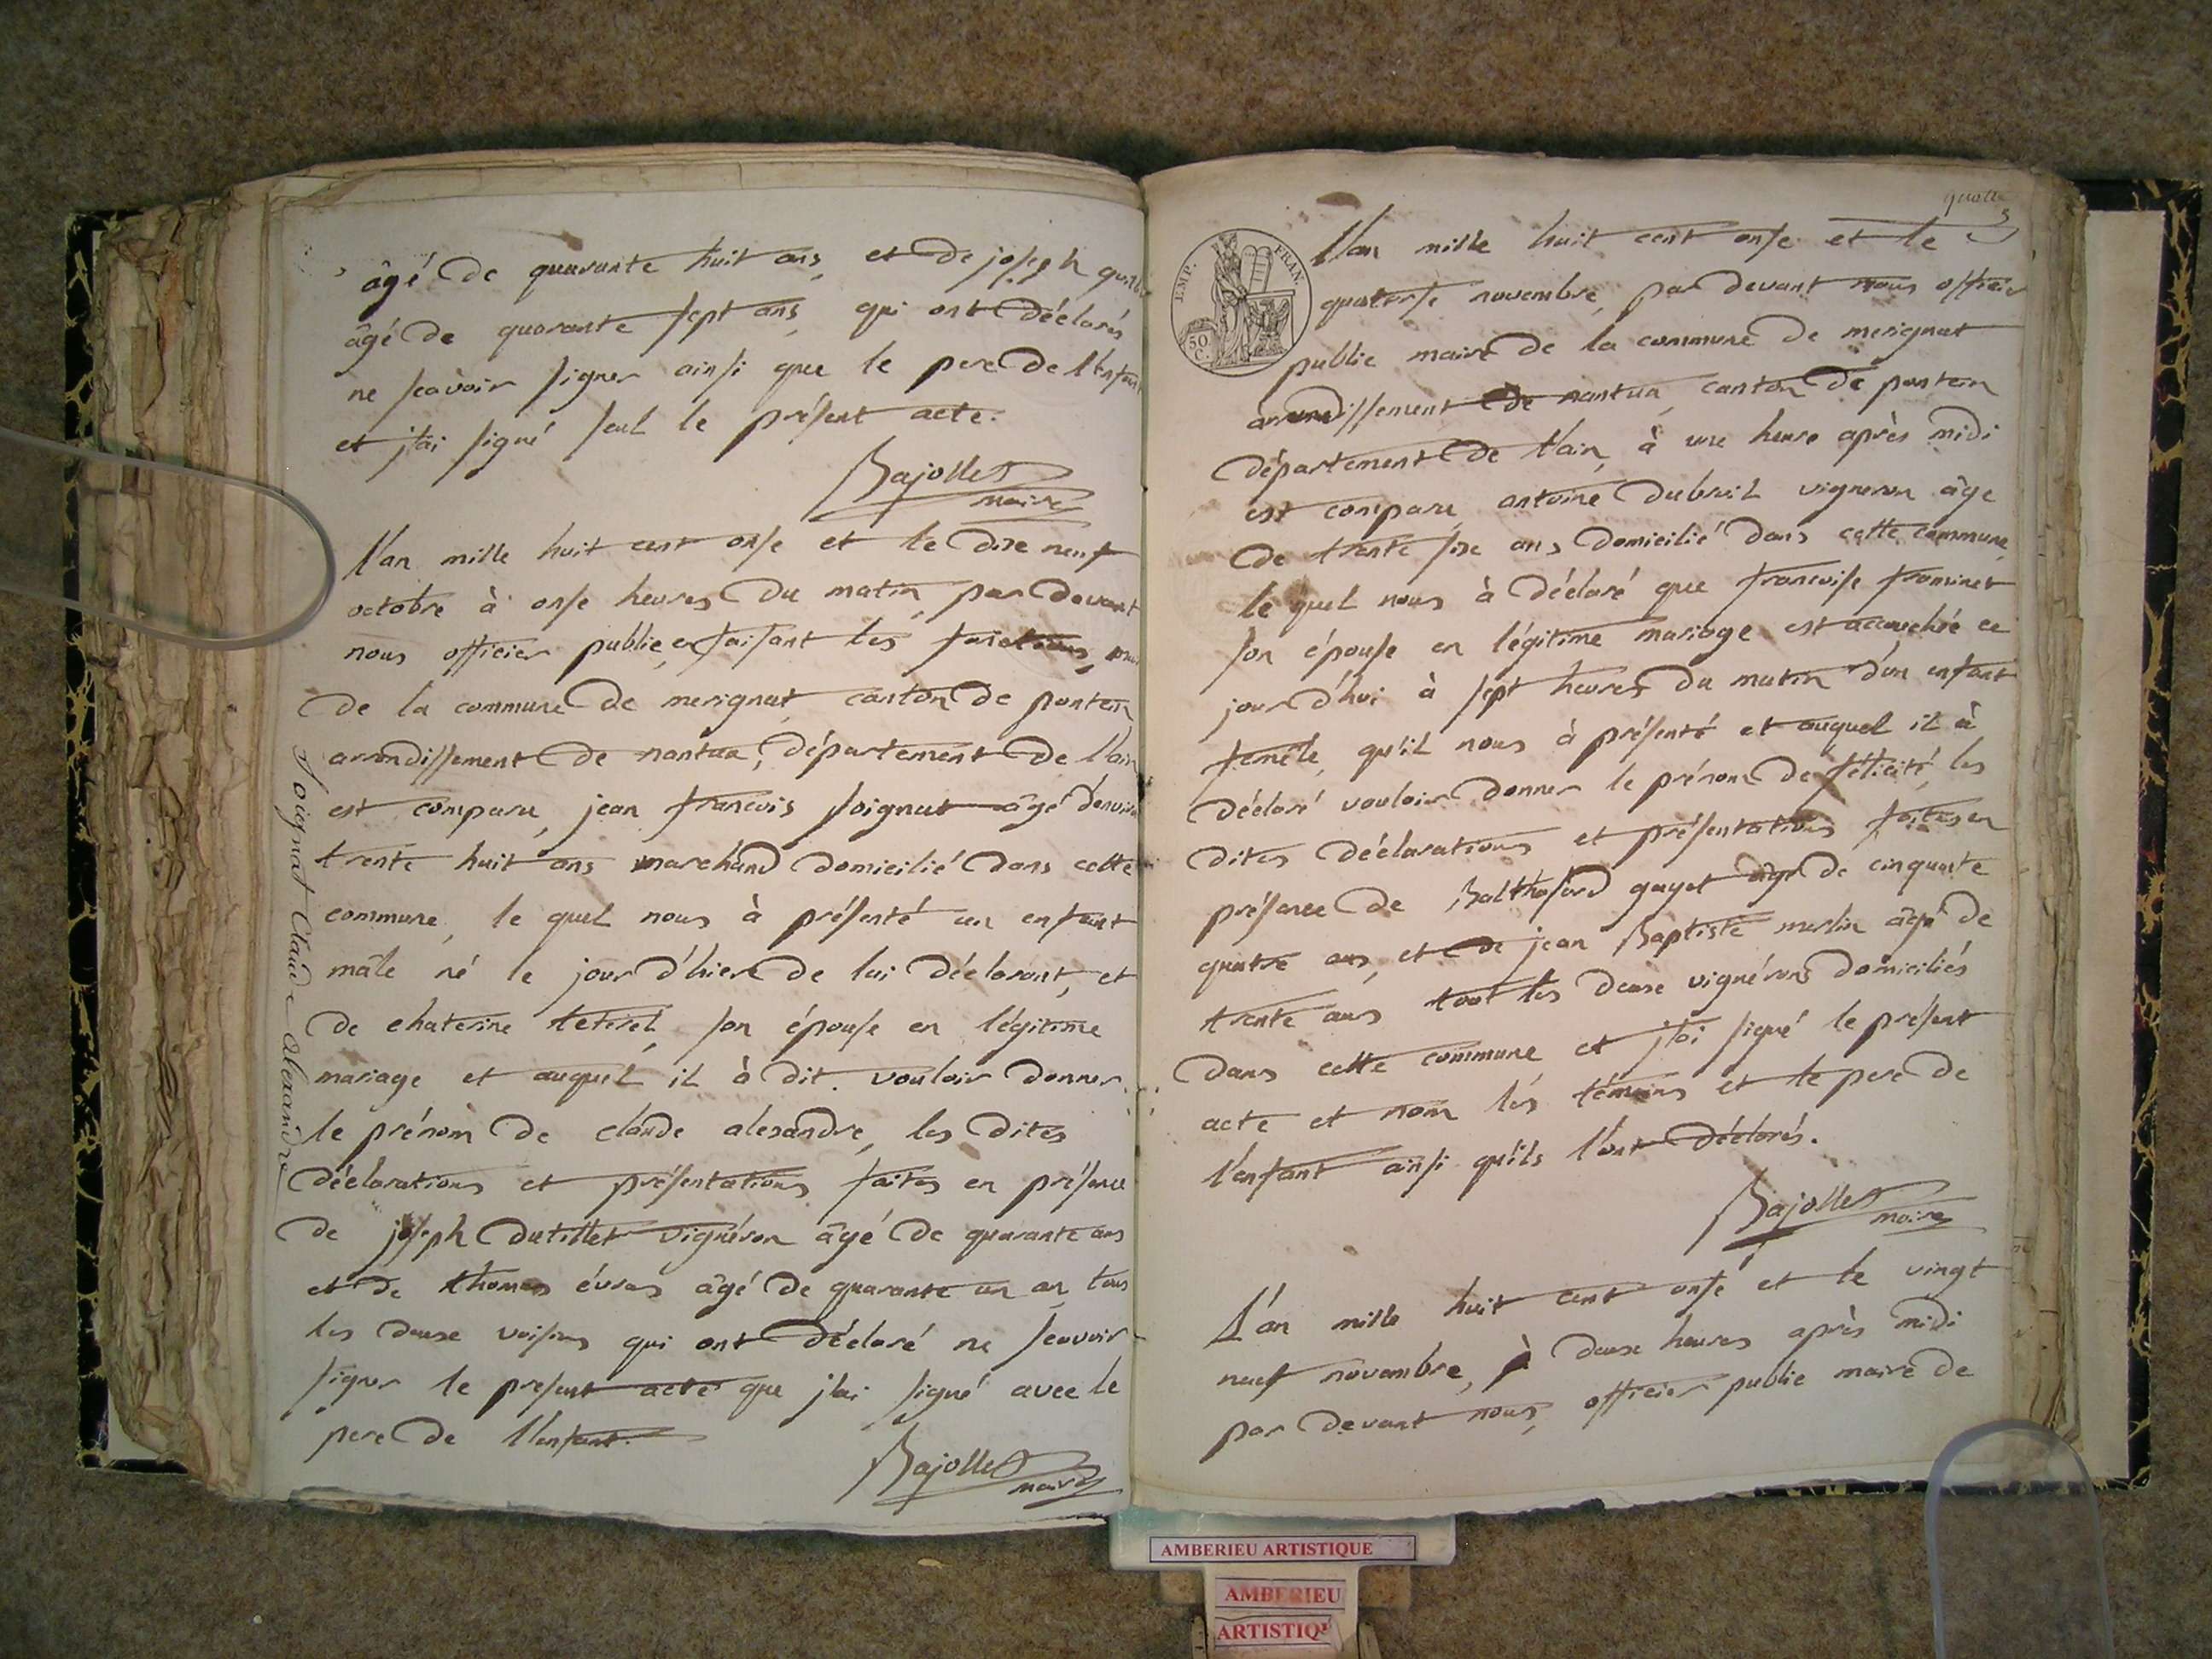 âgé de quarante huit ans, et de joseph
âgé de quarante sept ans, qui ont déclarés
ne scavoir signer ainsi que le pere de l'enfant
et j'ai signé seul le présent acte.
Bajollet
maire
l'an mille huit cent onse et le dixe neuf
octobre à onse heures du matin, par devant
nous officier public en faisant les fonctions,
de la commune de merignat, canton de pontein
arrondissement de nantua, département de l'ain
est comparu, jean francois soignat âgé d'environ
trente huit ans marchand domicilié dans cette
commune, le quel nous à présenté un enfant
mâle né le jour d'hier de lui déclarant, et
de chaterine tetirel, son épouse en légitime
mariage et auquel il à dit vouloir donner
le prénom de claude alexandre, les dites
déclarations et présentations faites en présence
de joseph dutillet vignéron âgé de quarante ans
et de thomas évras âgé de quarante un an, tous
les deuse voisins qui ont déclaré ne scavoir
signer le present acte que j'ai signé avec le
pere de l'enfant.
Bajollet
maire
Soignat Claude Alexandre
quatre
3
J.MP. FRAN.
50 C.
l'an mille huit cent onse et le
quatorse novembre, par devant nous officier
public maire de la commune de merignat
arrondissement de nantua, canton de pontein
département de l'ain, à une heure après midi
est comparu antoine dubreil vigneron âge
de trente sixe ans domicilié dans cette commune,
le quel nous à déclaré que francoise frominet
son épouse en légitime mariage est accouchée ce
jour d'hui à sept heures du matin d'un enfant
femêle, qu'il nous à présenté et auquel il à
déclaré vouloir donner le prénom de félicité, les
dites déclarations et présentations faites en
présence de Balthasard guyot âgé de cinquante
quatre ans, et de jean Baptiste merlin âgé de
trente ans tout les deuse vignérons domiciliés
dans cette commune, et j'ai signé le présent
acte et non les témoins et le pere de
l'enfant ainsi qu'ils l'ont déclarés.
Bajollet
maire
L'an mille huit cent onse et le vingt
neuf novembre, à deuse heures après midi
par devant nous, officier public maire de
AMBERIEU ARTISTIQUE
AMBERIEU
ARTISTIQU